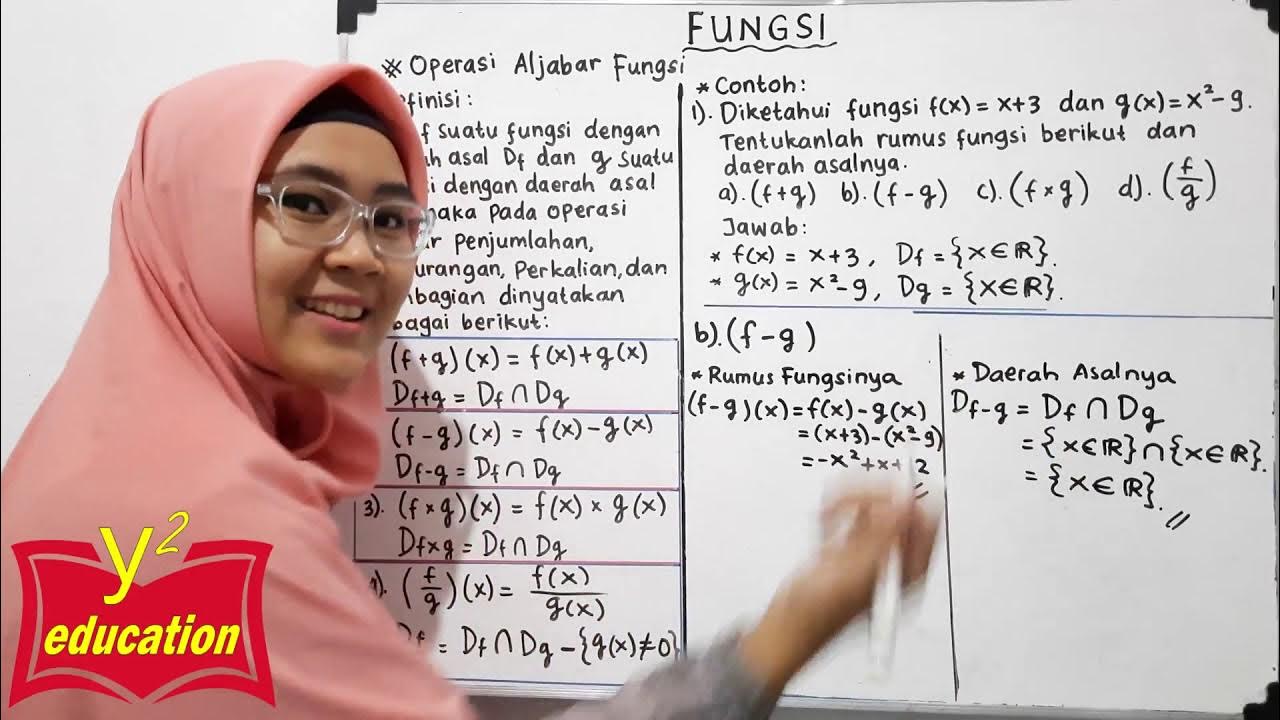 FUNGSI
* Operasi Aljabar Fungsi
finisi :
f suatu fungsi dengan
h asal Df dan g suatu
i dengan daerah asal
maka pada operasi
r penjumlahan,
urangan, Perkalian, dan
bagian dinyatakan
bagai berikut:
(f+g)(x) = f(x)+g(x)
Df+g = Df ∩ Dg
(f-g)(x) = f(x)-g(x)
Df-g = Df ∩ Dg
3). (f×g)(x) = f(x) × g(x)
Df×g = Df ∩ Dg
). (f/g)(x) = f(x)/g(x)
= Df ∩ Dg - {g(x)≠0}
* Contoh:
1). Diketahui fungsi f(x) = x+3 dan g(x) = x²-9.
Tentukanlah rumus fungsi berikut dan
daerah asalnya.
a). (f+g) b). (f-g) c). (f×g) d). (f/g)
Jawab:
* f(x) = x+3, Df = {x∈ℝ}.
* g(x) = x²-9, Dg = {x∈ℝ}.
b). (f-g)
* Rumus Fungsinya
(f-g)(x) = f(x)-g(x)
= (x+3)-(x²-9)
= -x²+x+ 2
* Daerah Asalnya
Df-g = Df ∩ Dg
= {x∈ℝ} ∩ {x∈ℝ}.
= {x∈ℝ}.
y²
education